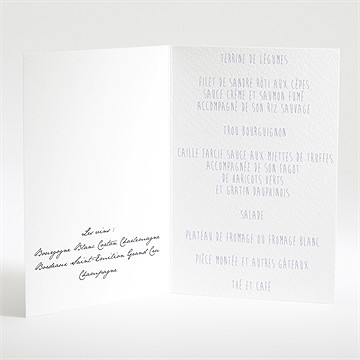 Les vins :
Bourgogne Blanc Corton Charlemagne
Bordeaux Saint-Emilion Grand Cru
Champagne
TERRINE DE LÉGUMES
FILET DE SANDRE RÔTI AUX CÈPES
SAUCE CRÈME ET SAUMON FUMÉ
ACCOMPAGNÉ DE SON RIZ SAUVAGE
TROU BOURGUIGNON
CAILLE FARCIE SAUCE AUX MIETTES DE TRUFFES
ACCOMPAGNÉE DE SON FAGOT
DE HARICOTS VERTS
ET GRATIN DAUPHINOIS
SALADE
PLATEAU DE FROMAGE OU FROMAGE BLANC
PIÈCE MONTÉE ET AUTRES GÂTEAUX
THÉ ET CAFÉ